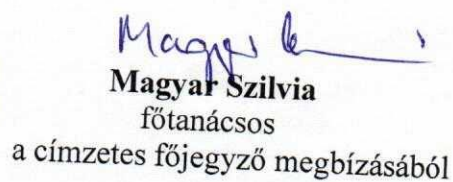 Magyar
Magyar Szilvia
főtanácsos
a címzetes főjegyző megbízásából